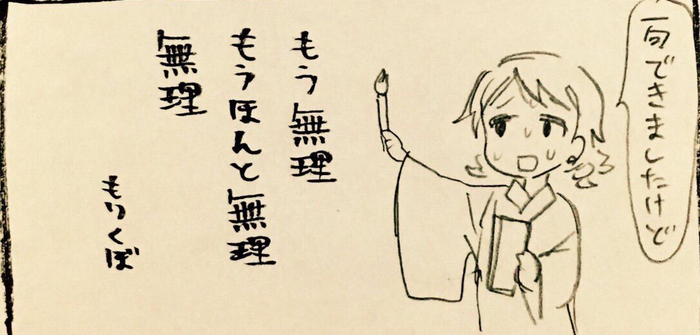 一句できましたけど
もう無理
もうほんと無理
無理
もりくぼ